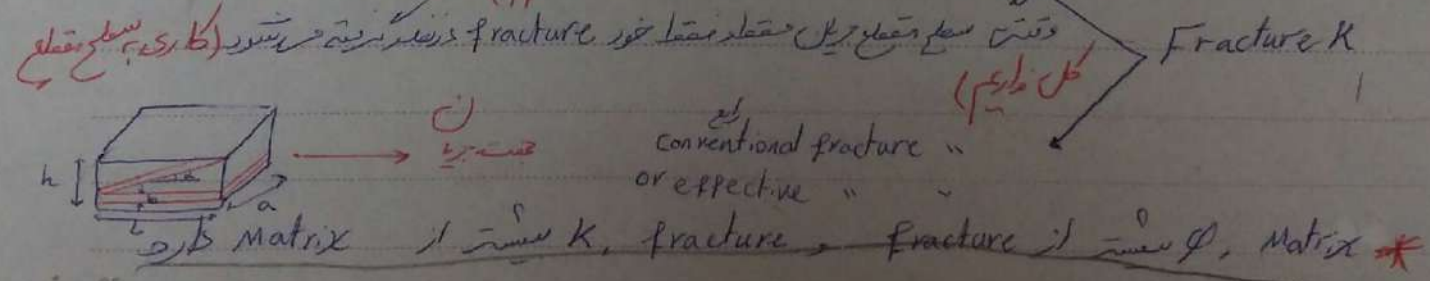 وقتی سطح مقطع جریان فقط فقط خود fracture در نظر گرفته می‌شود (کاری به سطح مقطع کل نداریم)
Fracture K
جهت جریان
رایج
conventional fracture "
or effective " "
h
a
b
L
* Matrix ، φ بیشتر از fracture و fracture ، K بیشتر از Matrix دارد